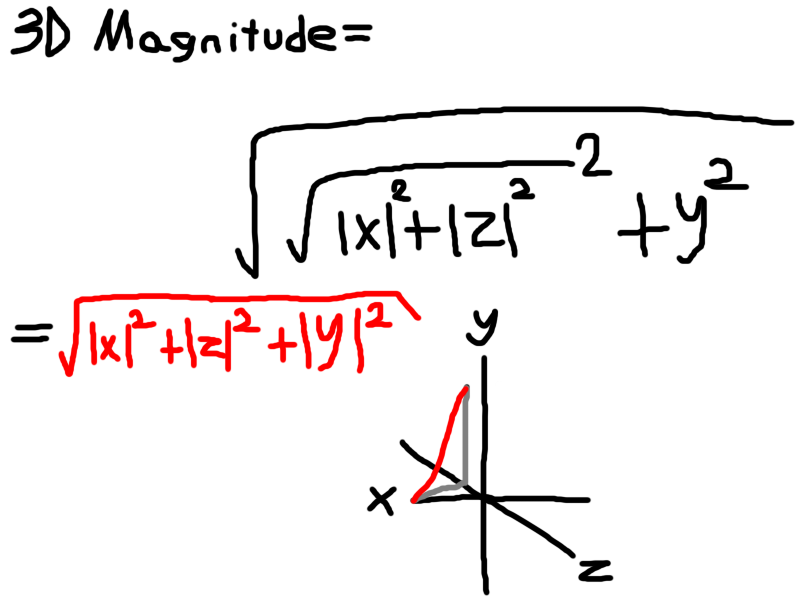 3D Magnitude=
√√|x|²+|z|²² +y²
=√|x|²+|z|²+|y|²
y
x
z